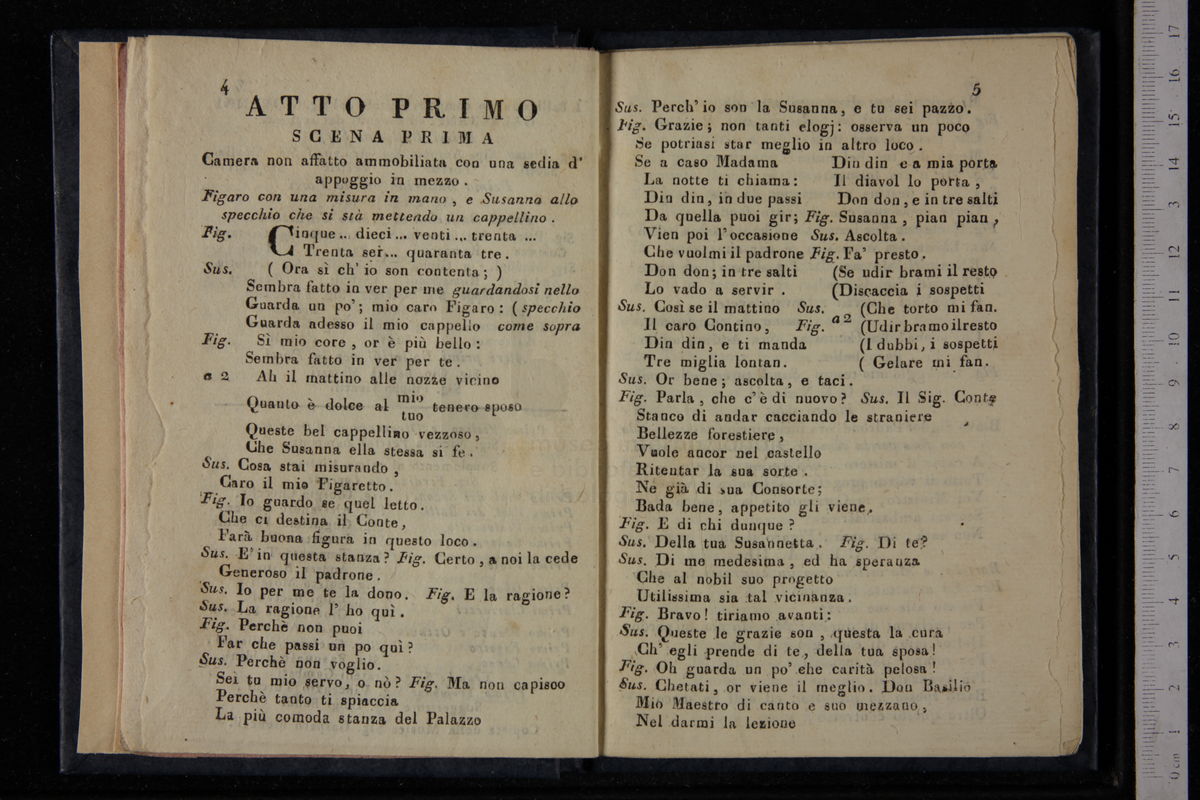 4
ATTO PRIMO
SCENA PRIMA
Camera non affatto ammobiliata con una sedia d'
appoggio in mezzo .
Figaro con una misura in mano , e Susanna allo
specchio che si stà mettendo un cappellino .
Fig. Cinque... dieci... venti... trenta ...
Trenta sei... quaranta tre .
Sus. ( Ora sì ch' io son contenta ; )
Sembra fatto in ver per me guardandosi nello
Guarda un po' ; mio caro Figaro : ( specchio
Guarda adesso il mio cappello come sopra
Fig. Sì mio core , or è più bello :
Sembra fatto in ver per te .
a 2 Ah il mattino alle nozze vicino
Quanto è dolce al mio tuo tenero sposo
Queste bel cappellino vezzoso ,
Che Susanna ella stessa si fe .
Sus. Cosa stai misurando ,
Caro il mio Figaretto .
Fig. Io guardo se quel letto .
Che ci destina il Conte ,
Farà buona figura in questo loco .
Sus. E' in questa stanza ? Fig. Certo , a noi la cede
Generoso il padrone .
Sus. Io per me te la dono . Fig. E la ragione ?
Sus. La ragione l' ho quì .
Fig. Perchè non puoi
Far che passi un po quì ?
Sus. Perchè non voglio .
Sei tu mio servo , o nò ? Fig. Ma non capisco
Perchè tanto ti spiaccia
La più comoda stanza del Palazzo
5
Sus. Perch' io son la Susanna , e tu sei pazzo .
Fig. Grazie ; non tanti elogj : osserva un poco
Se potriasi star meglio in altro loco .
Se a caso Madama Din din e a mia porta
La notte ti chiama : Il diavol lo porta ,
Din din , in due passi Don don , e in tre salti
Da quella puoi gir ; Fig. Susanna , pian pian ,
Vien poi l' occasione Sus. Ascolta .
Che vuolmi il padrone Fig. Fa' presto .
Don don ; in tre salti (Se udir brami il resto
Lo vado a servir . (Discaccia i sospetti
Sus. Così se il mattino Sus. a 2 (Che torto mi fan.
Il caro Contino , Fig. (Udir bramo il resto
Din din , e ti manda (I dubbi , i sospetti
Tre miglia lontan. ( Gelare mi fan.
Sus. Or bene ; ascolta , e taci .
Fig. Parla , che c' è di nuovo ? Sus. Il Sig. Conte
Stanco di andar cacciando le straniere
Bellezze forestiere ,
Vuole ancor nel castello
Ritentar la sua sorte .
Ne già di sua Consorte ;
Bada bene , appetito gli viene .
Fig. E di chi dunque ?
Sus. Della tua Susannetta . Fig. Di te ?
Sus. Di me medesima , ed ha speranza
Che al nobil suo progetto
Utilissima sia tal vicinanza .
Fig. Bravo ! tiriamo avanti :
Sus. Queste le grazie son , questa la cura
Ch' egli prende di te , della tua sposa !
Fig. Oh guarda un po' che carità pelosa !
Sus. Chetati , or viene il meglio . Don Basilio
Mio Maestro di canto e suo mezzano ,
Nel darmi la lezione
0 cm 1 2 3 4 5 6 7 8 9 10 11 12 13 14 15 16 17